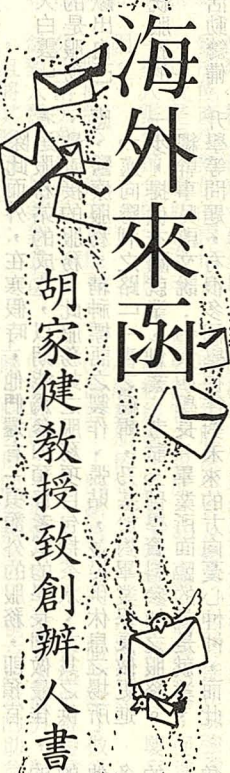 海外來函
胡家健敎授致創辦人書